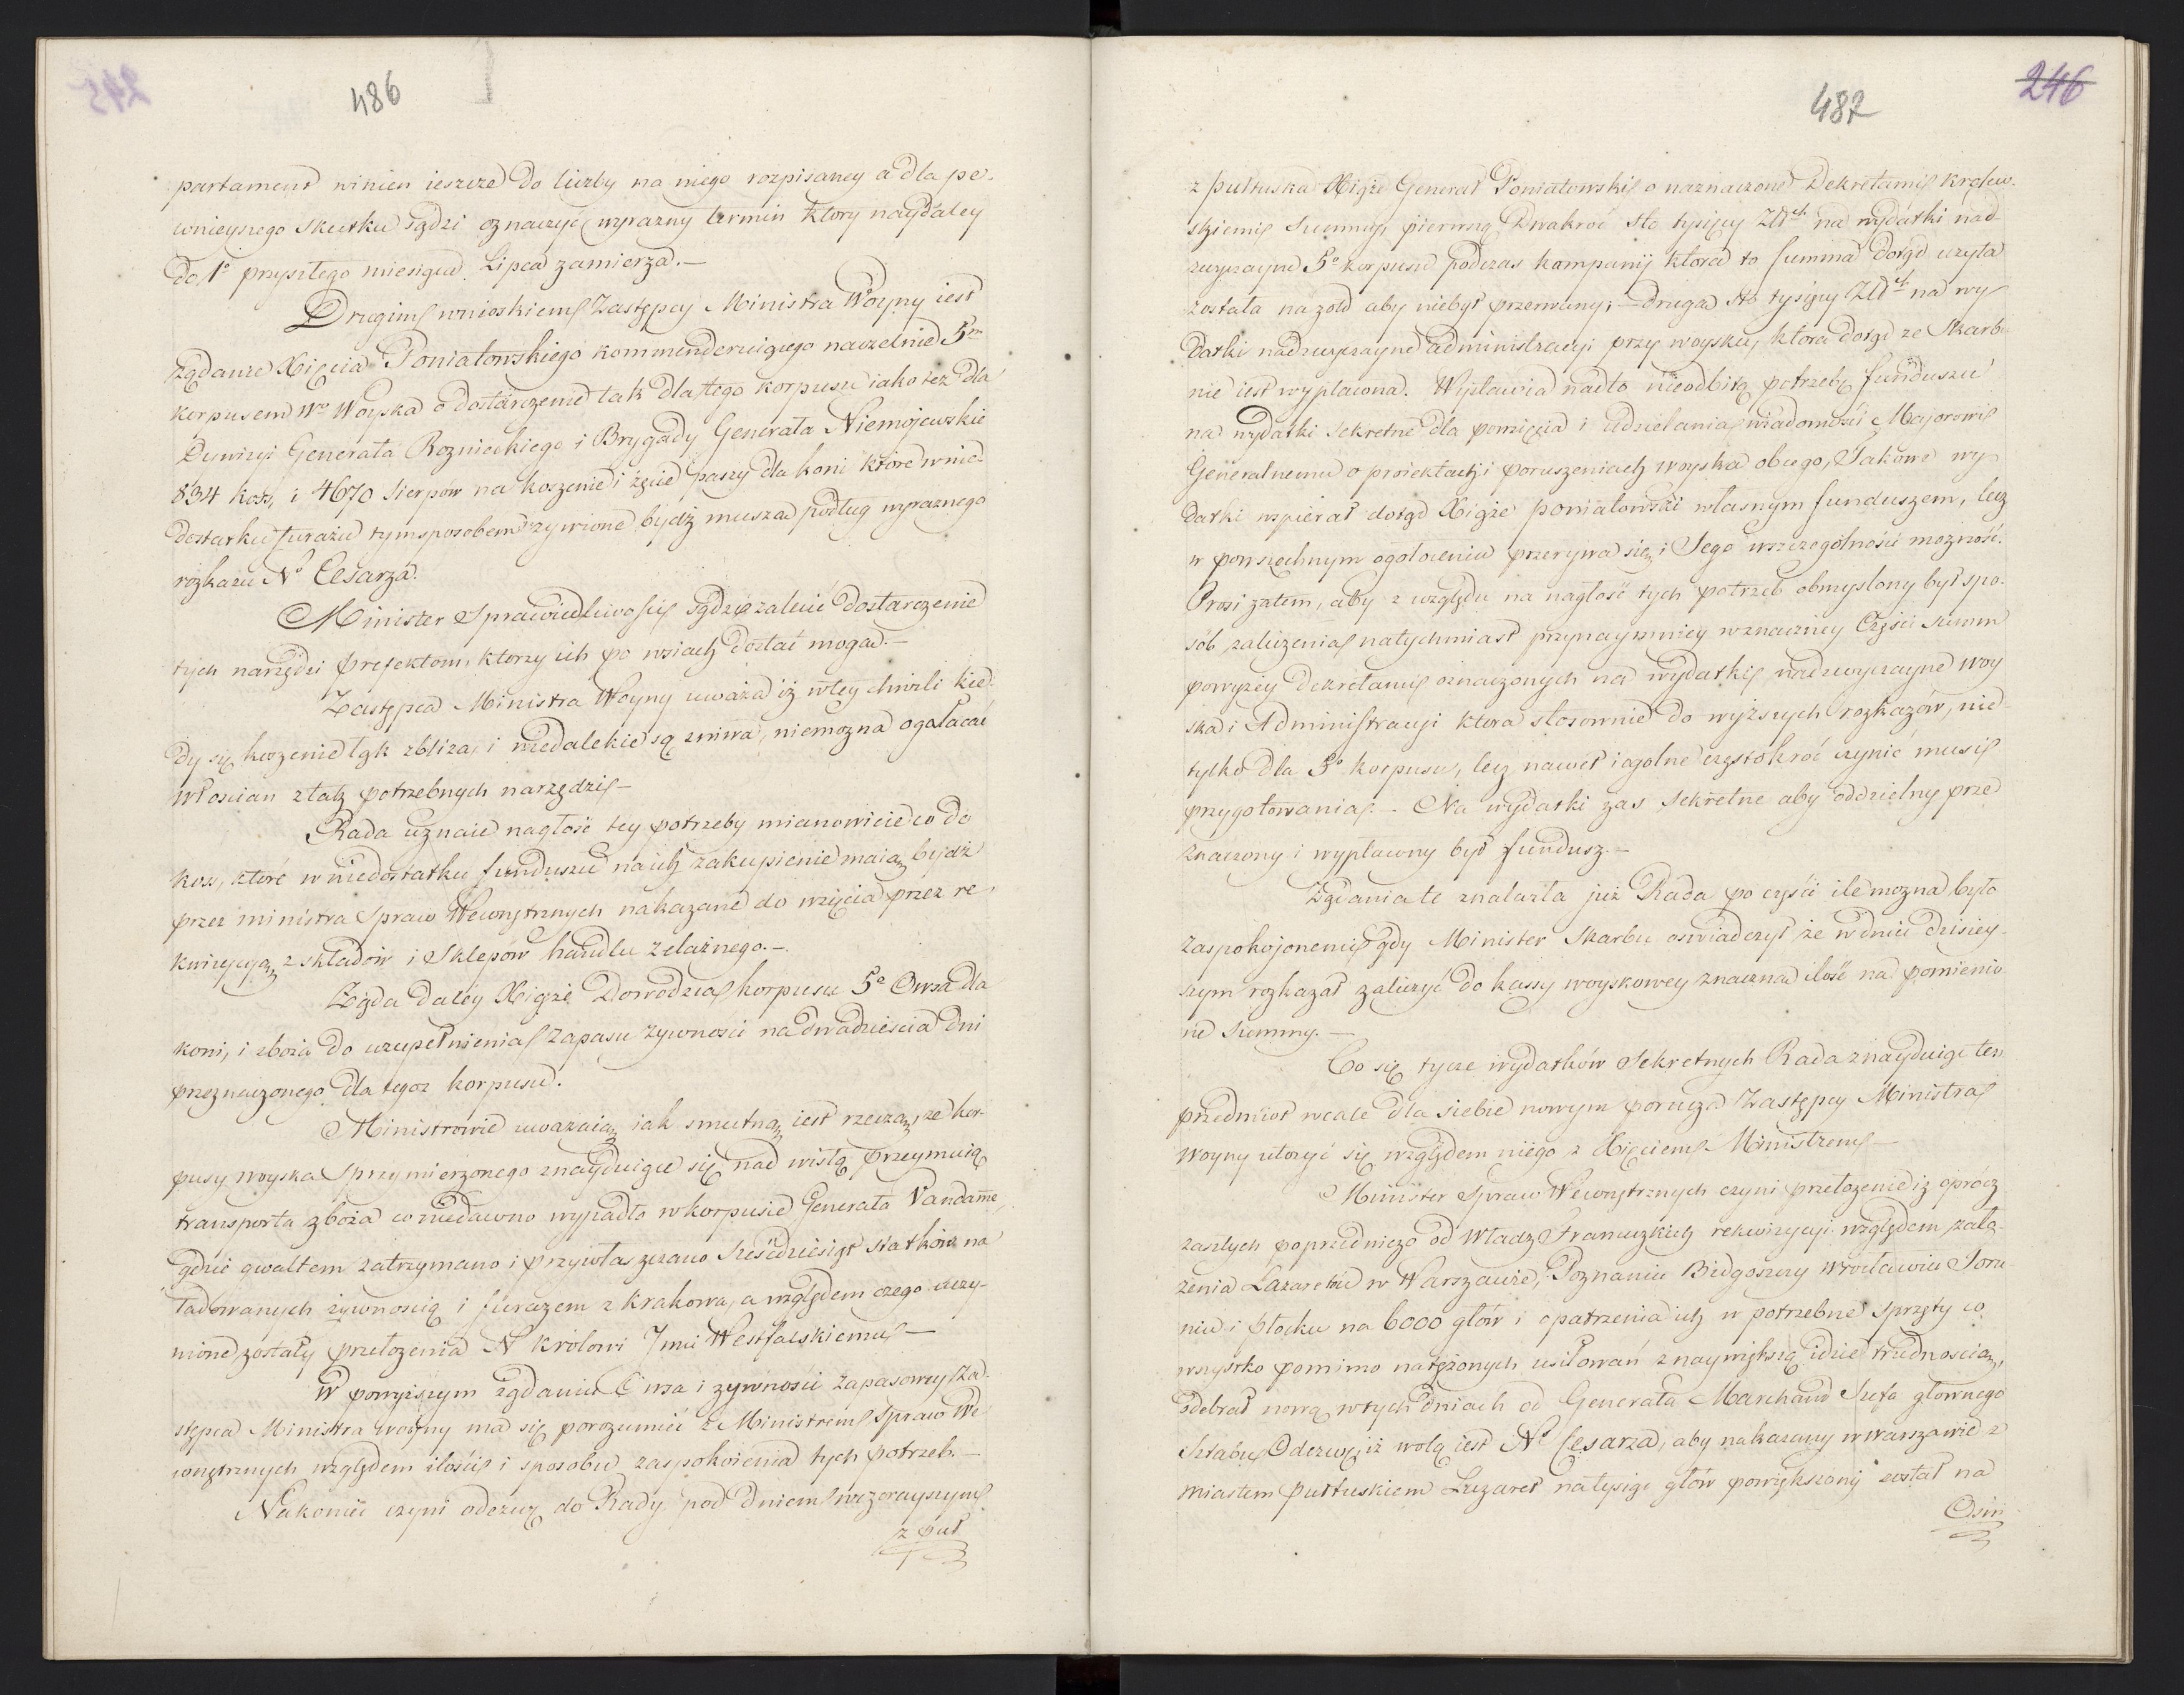 486
partament winien ieszcze do liczby na niego rozpisaney a dla pe-
wnieyszego skutku sądzi oznaczyć wyrazny termin ktory naydaley
do 1o przyszłego miesiąca Lipca zamierza.—
Drugim wnioskiem Zastępcy Ministra Woyny iest
żądanie Xięcia Poniatowskiego kommenderuiącego naczelnie 5m
korpusem Wo Woyska o dostarczenie tak dla tego korpusu iako też dla
Dywizyi Generała Roznieckiego i Brygady Generała Niemojewskie
834 kos, i 4670 Sierpow na koszenie i zęcie paszy dla koni które w nie-
dostatku furażu tym sposobem zywione bydź musza podług wyraznego
rozkazu No Cesarza.
Minister Sprawiedliwości sądzi zalecić dostarczenie
tych narzędzi Prefektom, ktorzy ich po wsiach dostać moga.—
Zastępca Ministra Woyny uważa iż w tey chwili kie-
dy się koszenie łąk zbliza, i niedalekie są zniwa, niemozna ogałacać
włoscian z tak potrzebnych narzędzi—
Rada uznaie nagłość tey potrzeby mianowicie co do
kos, które w niedostatku funduszu na ich zakupienie maią bydź
przez ministra Spraw Wewnętrznych nakazane do wzięcia przez re-
kwizycyą z składów i Sklepów handlu zelaznego.—
Żąda daley Xiąże Dowodzca korpusu 5o Owsa dla
koni, i zboza do uzupełnienia zapasu zywności na dwadzieścia dni
przeznaczonego dla tegoz korpusu.
Ministrowie uważaią iak smutną iest rzeczą, ze kor-
pusy woyska sprzymierzonego znayduiące się nad wisłą przeymuią
transporta zboza co niedawno wypadło w korpusie Generała Vandame,
gdzie gwałtem zatrzymano i przywłaszczano sześćdziesiąt statkow na
ładowanych zywnoscią i furazem z Krakowa, a względem czego uczy-
nione zostały przełozenia N Krolowi Jmci Westfalskiemu—
W powyższym żądaniu Owsa i zywności zapasowey Za-
stępca Ministra woyny ma się porozumieć z Ministrem Spraw We-
wnętrznych względem ilości i sposobu zaspokoienia tych potrzeb.—
Nakoniec czyni odezwę do Rady pod dniem wczorayszym
z Puł
487
246
z Pułtuska Xiąże Generał Poniatowski o naznaczone Dekretami krolew-
skiemi Summy, pierwszą Dwakroć sto tysięcy Złch na wydatki nad-
zwyczayne 5o korpusu podczas kampanij ktora to summa dotąd uzyta
została na zołd aby niebył przerwany;— druga sto tysięcy Złch na wy-
datki nadzwyczayne administracyi przy woysku, ktora dotąd ze Skarbu
nie iest wypłacona. Wystawia nadto nieodbitą potrzebę funduszu
na wydatki sekretne dla powzięcia i udzielania wiadomości Majorowi
Generalnemu o proiektach i poruszeniach woyska obcego, Takowe wy-
datki wspierał dotąd Xiąże poniatowski własnym funduszem, lecz
w powszechnym ogołoceniu przerywa się i Jego wszczególności możność.
Prosi zatem, aby z względu na nagłość tych potrzeb obmyslony był spo-
sób zaliczenia natychmiast przynaymniey w znaczney Części summ
powyżey dekretami oznaczonych na wydatki nadzwyczayne woy
ska i Administracyi ktora stosownie do wyższych rozkazów, nie-
tylko dla 5o korpusu, lecz nawet i ogolne częstokroć czynić musi
przygotowania.— Na wydatki zas sekretne aby oddzielny prze
znaczony i wypłacony był fundusz.—
Ządania te znalazła już Rada po części ile mozna było
zaspokojonemi gdy Minister Skarbu oswiadczył ze w dniu dzisiey-
szym rozkazał zaliczyć do kassy woyskowey znaczna ilość na pomienio
ne summy.—
Co się tycze wydatków Sekretnych Rada znayduiąc ten
przedmiot wcale dla siebie nowym porucza Zastępcy Ministra
woyny ułozyć się względem niego z Xięciem Ministrem—
Minister Spraw Wewnętrznych czyni przełozenie iz oprócz
zaszłych poprzedniczo od Władz Francuzkich rekwizycyi względem zało-
żenia Lazaretów w Warszawie, Poznaniu Bidgoszczy Wrocławiu Toru
niu i Płocku na 6000 głów i opatrzenia ich w potrzebne sprzęty co
wszystko pomimo natężonych usiłowań z naywiększą idzie trudnoscią,
odebrał nową w tych dniach od Generała Marchand Szefa głownego
Sztabu Odezwę iż wolą iest No Cesarza, aby nakazany w warszawie z
miastem Pułtuskiem Lazaret na tysiąc głów powiększony został na
Osim